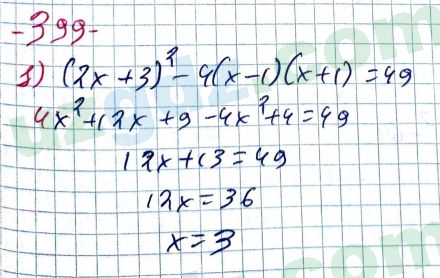 -399-
1) (2x+3)² - 4(x-1)(x+1) = 49
4x² + 12x + 9 - 4x² + 4 = 49
12x + 13 = 49
12x = 36
x = 3